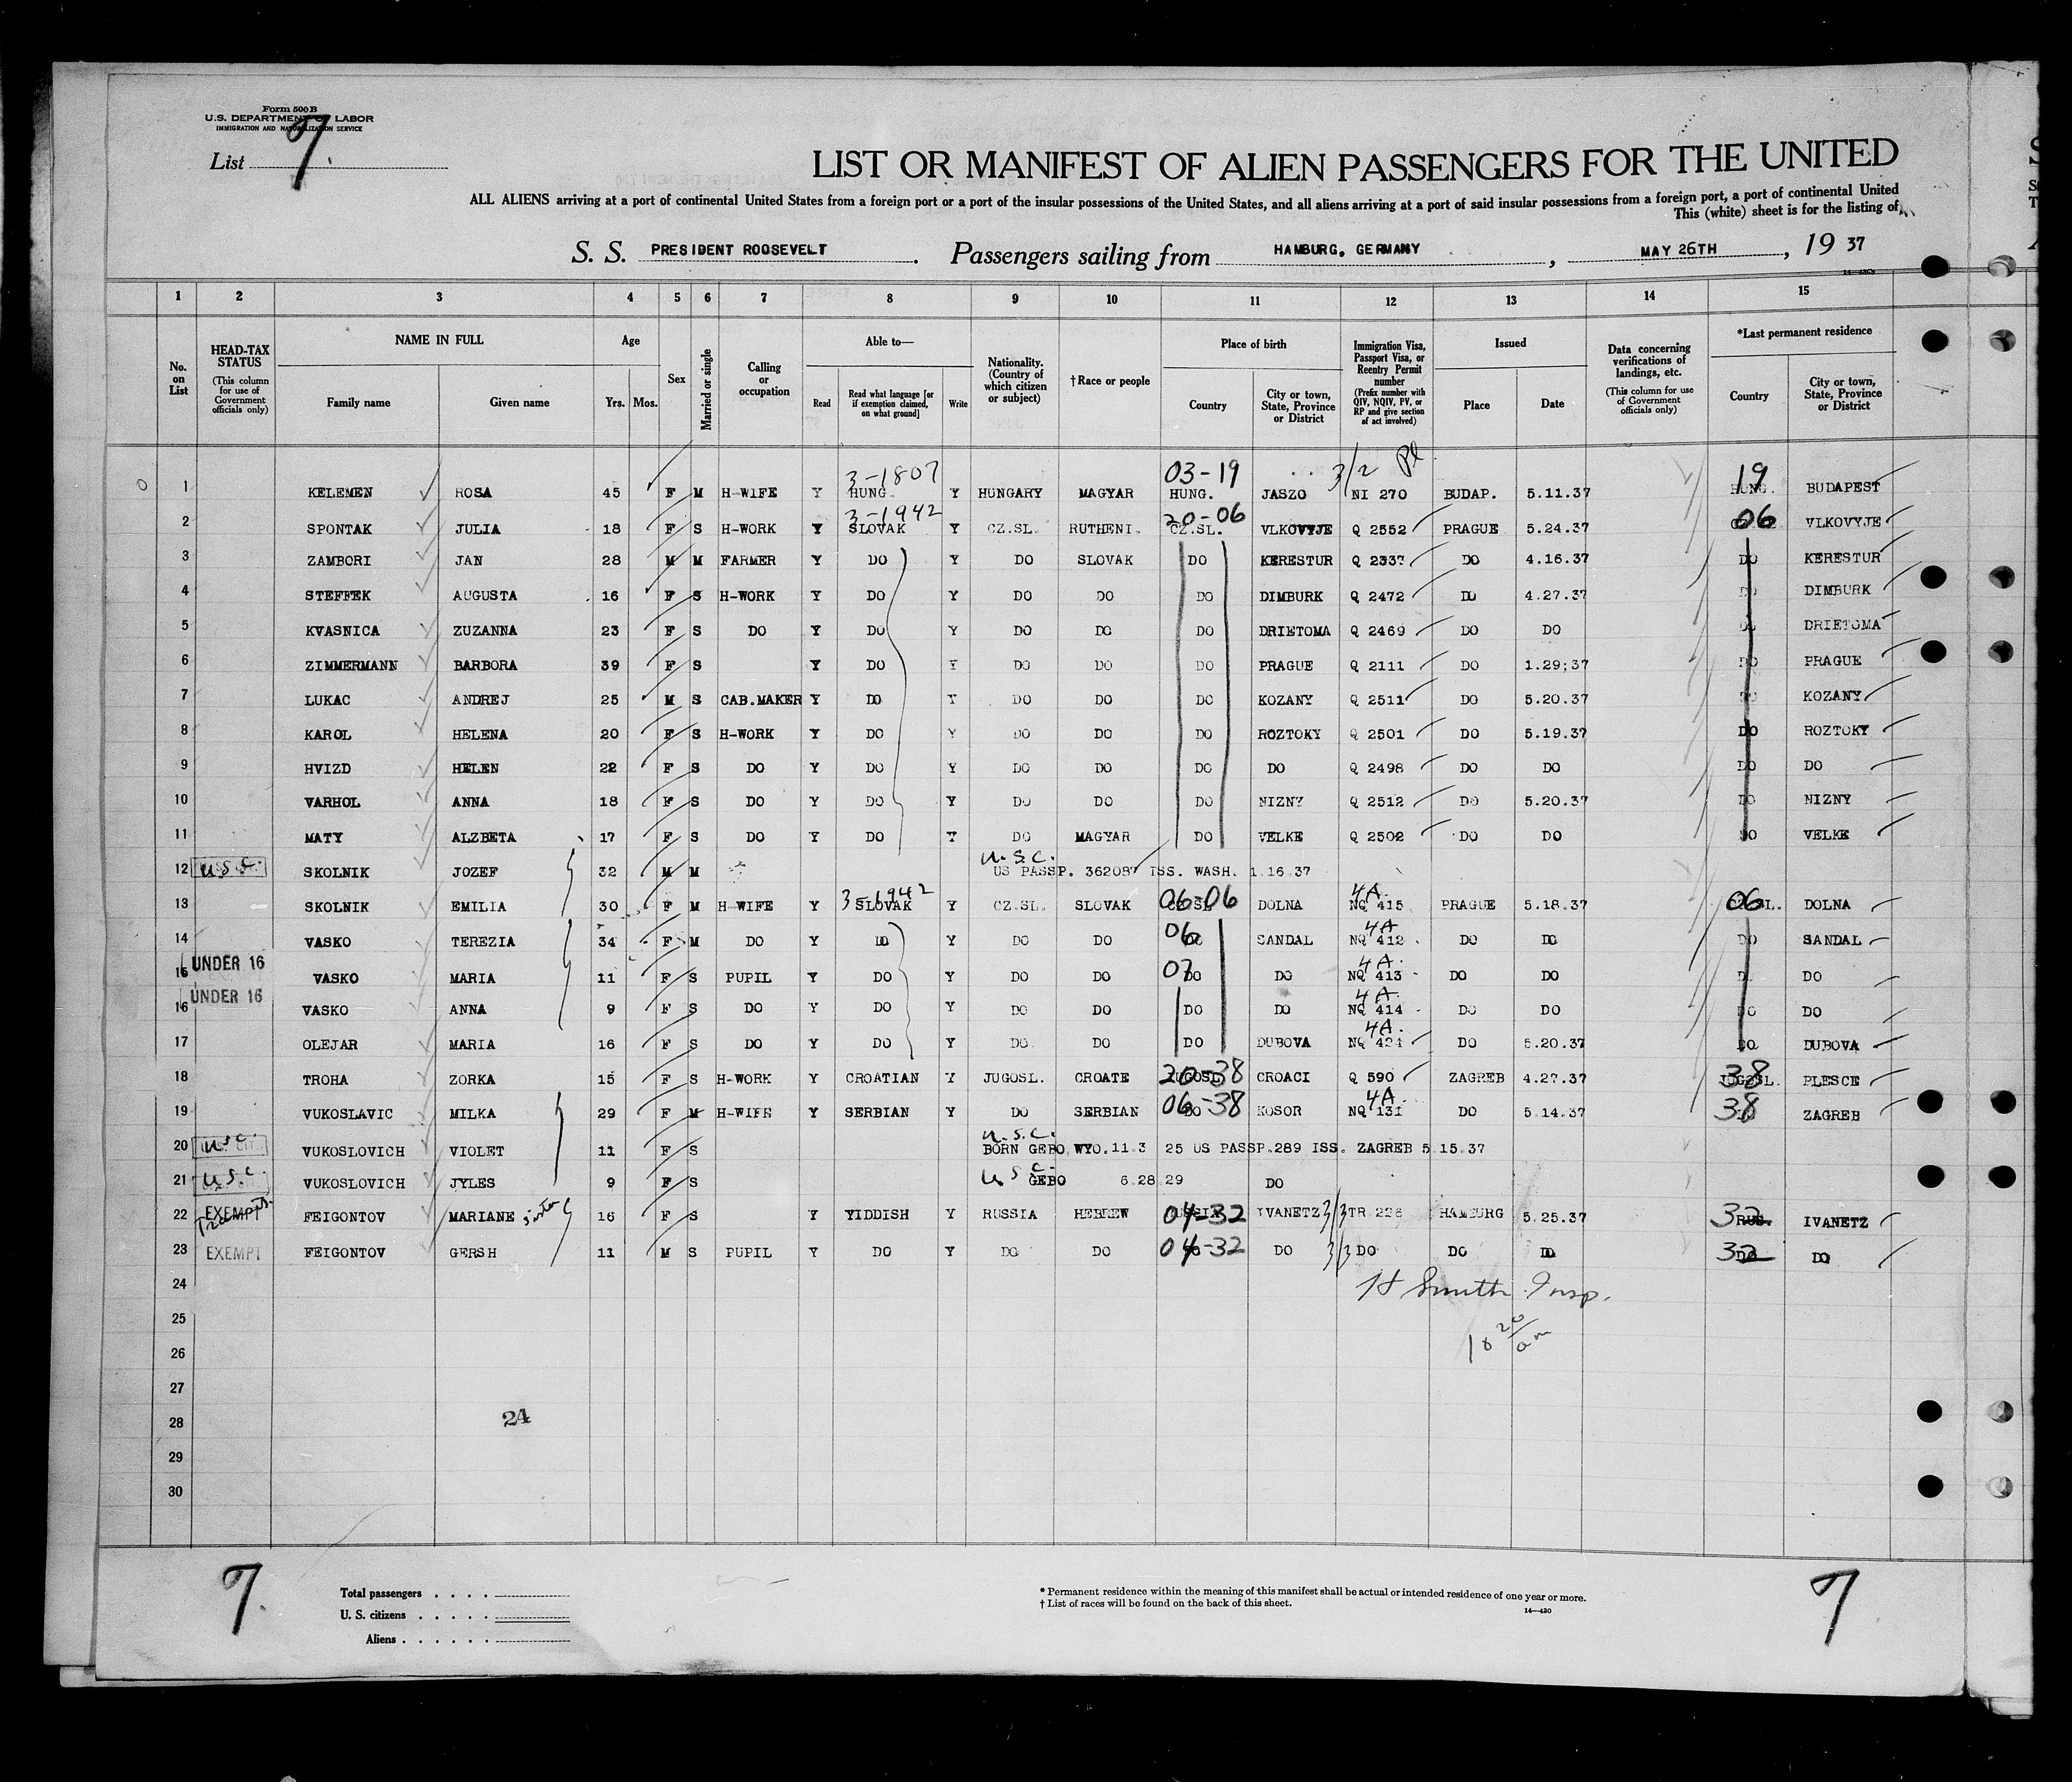 Form 500 B
U.S. DEPARTMENT OF LABOR
IMMIGRATION AND NATURALIZATION SERVICE
List 7.
LIST OR MANIFEST OF ALIEN PASSENGERS FOR THE UNITED
ALL ALIENS arriving at a port of continental United States from a foreign port or a port of the insular possessions of the United States, and all aliens arriving at a port of said insular possessions from a foreign port, a port of continental United
This (white) sheet is for the listing of
S. S. PRESIDENT ROOSEVELT. Passengers sailing from HAMBURG, GERMANY, MAY 26TH, 19 37
1 2 3 4 5 6 7 8 9 10 11 12 13 14 15
No. on List
HEAD-TAX STATUS (This column for use of Government officials only)
NAME IN FULL Family name Given name
Age Yrs. Mos.
Sex
Married or single
Calling or occupation
Able to— Read Read what language [or if exemption claimed, on what ground] Write
Nationality. (Country of which citizen or subject)
†Race or people
Place of birth Country City or town, State, Province or District
Immigration Visa, Passport Visa, or Reentry Permit number (Prefix number with QIV, NQIV, PV, or RP and give section of act involved)
Issued Place Date
Data concerning verifications of landings, etc. (This column for use of Government officials only)
*Last permanent residence Country City or town, State, Province or District
3-1807 03-19 3/2 19
1 KELEMEN ROSA 45 F M H-WIFE Y HUNG. Y HUNGARY MAGYAR HUNG. JASZO NI 270 BUDAP. 5.11.37 HUNG. BUDAPEST
3-1942 20-06 06
2 SPONTAK JULIA 18 F S H-WORK Y SLOVAK Y CZ.SL. RUTHENI. CZ.SL. VLKOVYJE Q 2552 PRAGUE 5.24.37 VLKOVYJE
3 ZAMBORI JAN 28 M M FARMER Y DO Y DO SLOVAK DO KERESTUR Q 2337 DO 4.16.37 DO KERESTUR
4 STEFFEK AUGUSTA 16 F S H-WORK Y DO Y DO DO DO DIMBURK Q 2472 DO 4.27.37 DO DIMBURK
5 KVASNICA ZUZANNA 23 F S DO Y DO Y DO DO DO DRIETOMA Q 2469 DO DO DRIETOMA
6 ZIMMERMANN BARBORA 39 F S Y DO Y DO DO DO PRAGUE Q 2111 DO 1.29;37 DO PRAGUE
7 LUKAC ANDREJ 25 M S CAB.MAKER Y DO Y DO DO DO KOZANY Q 2511 DO 5.20.37 DO KOZANY
8 KAROL HELENA 20 F S H-WORK Y DO Y DO DO DO ROZTOKY Q 2501 DO 5.19.37 DO ROZTOKY
9 HVIZD HELEN 22 F S DO Y DO Y DO DO DO DO Q 2498 DO DO DO DO
10 VARHOL ANNA 18 F S DO Y DO Y DO DO DO NIZNY Q 2512 DO 5.20.37 DO NIZNY
11 MATY ALZBETA 17 F S DO Y DO Y DO MAGYAR DO VELKE Q 2502 DO DO DO VELKE
U.S.C.
12 U.S.C. SKOLNIK JOZEF 32 M M US PASSP. 362087 ISS. WASH. 1.16.37
3-1942 06-06 4A. 06
13 SKOLNIK EMILIA 30 F M H-WIFE Y SLOVAK Y CZ.SL. SLOVAK DOLNA NQ 415 PRAGUE 5.18.37 DOLNA
06 4A
14 VASKO TEREZIA 34 F M DO Y DO Y DO DO DO SANDAL NQ 412 DO DO DO SANDAL
UNDER 16 07 4A.
15 VASKO MARIA 11 F S PUPIL Y DO Y DO DO DO DO NQ 413 DO DO DO
UNDER 16 4A.
16 VASKO ANNA 9 F S DO Y DO Y DO DO DO DO NQ 414 DO DO DO DO
4A.
17 OLEJAR MARIA 16 F S DO Y DO Y DO. DO DO DUBOVA NQ 424 DO 5.20.37 DO DUBOVA
20-38 38
18 TROHA ZORKA 15 F S H-WORK Y CROATIAN Y JUGOSL. CROATE JUGOSL CROACI Q 590 ZAGREB 4.27.37 JUGOSL. PLESCE
06-38 4A. 38
19 VUKOSLAVIC MILKA 29 F M H-WIFE Y SERBIAN Y DO SERBIAN DO KOSOR NQ 131 DO 5.14.37 ZAGREB
U.S.C.
20 U.S.C. VUKOSLOVICH VIOLET 11 F S BORN GEBO WYO. 11.3 25 US PASSP.289 ISS. ZAGREB 5.15.37
21 U.S.C. VUKOSLOVICH JYLES 9 F S U S C. GEBO 6.28.29 DO
22 EXEMPT FEIGONTOV MARIANE sister 16 F S Y YIDDISH Y RUSSIA HEBREW 04-32 IVANETZ 3/3 TR HAMBURG 5.25.37 32 RUS. IVANETZ
23 EXEMPT FEIGONTOV GERSH 11 M S PUPIL Y DO Y DO DO 04-32 DO 3/3 DO DO DO 32 DO DO
24
H Smith Insp.
25
10 20/am
26
27
28 24
29
30
7.
Total passengers
U. S. citizens
Aliens
* Permanent residence within the meaning of this manifest shall be actual or intended residence of one year or more.
† List of races will be found on the back of this sheet.
14—430
7